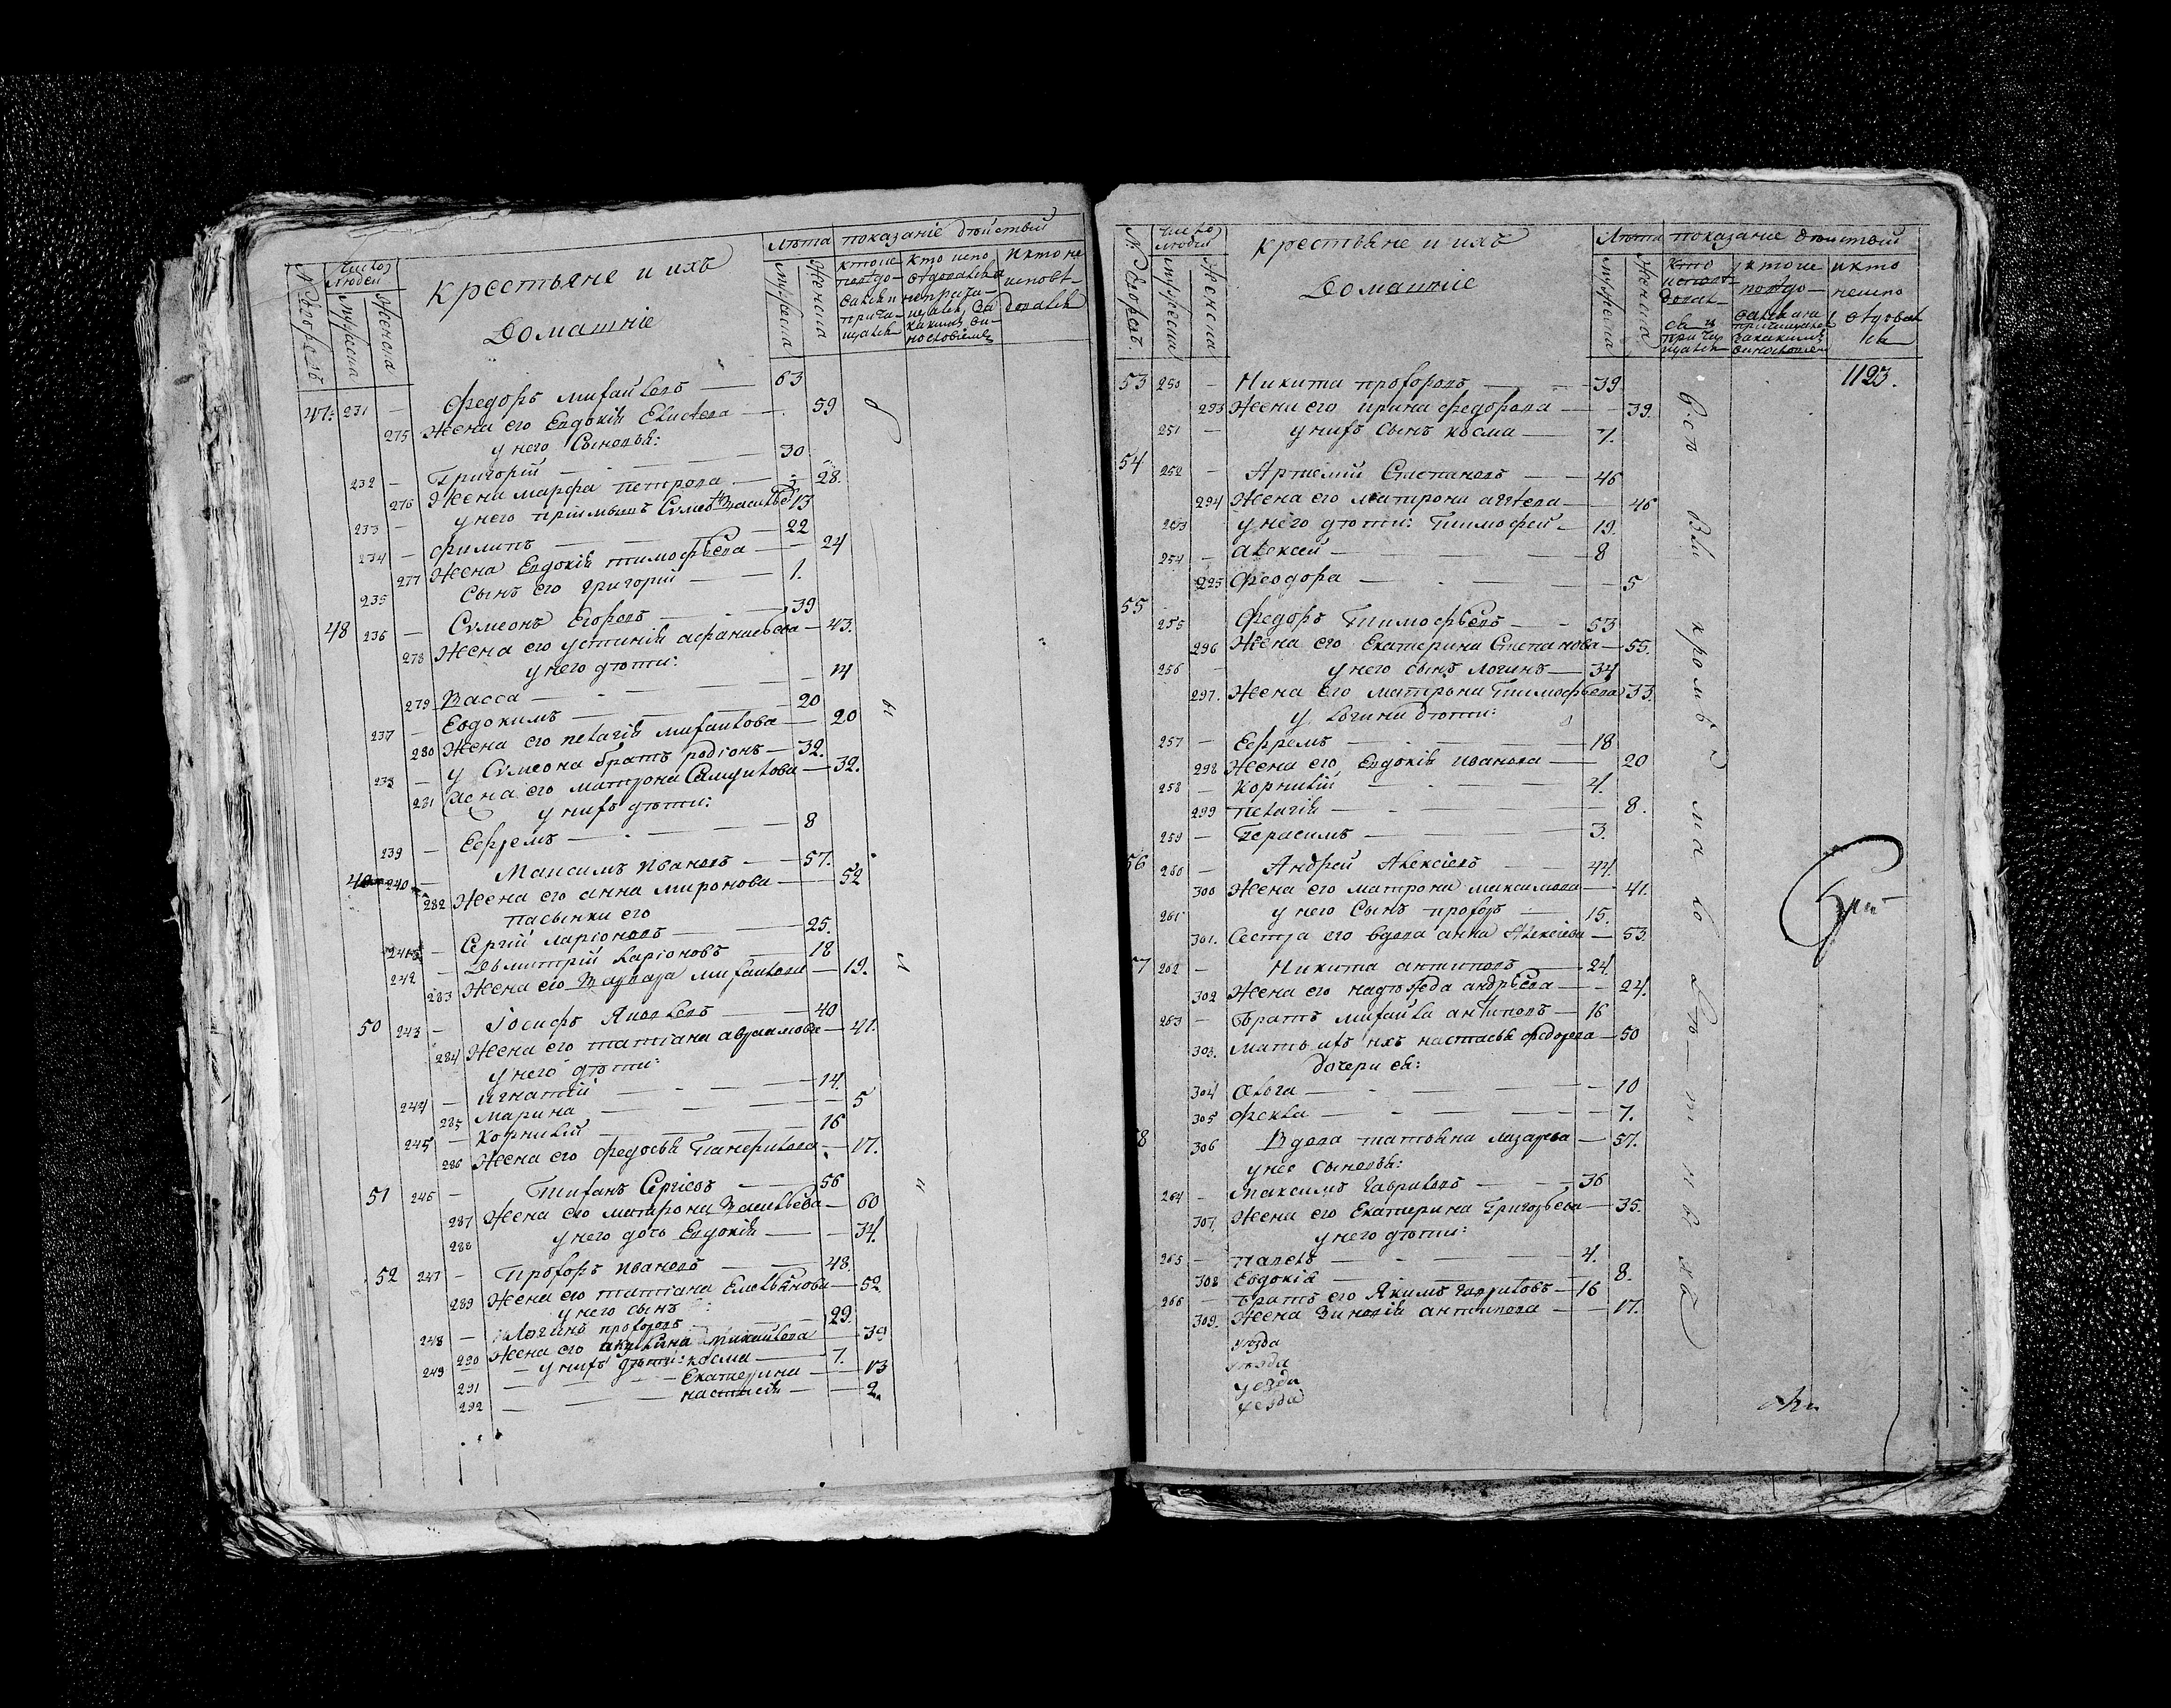 № дворовъ
Число людей
мужеска
Женска
крестьяне и ихъ
Домашніе
Лѣта
мужеска
Женска
показаніе дѣйствій
47. 231 — Федоръ михайловъ — 63
275 Жена его Евдокія — 59
у него Сыновья:
232 — Григорій — 30
276 Жена марфа петрова — 28.
233 — у него пріимышъ Сѵмеонъ Васильевъ 13
234 — филипъ — 22
277 Жена Евдокія тимофѣева — 24
235 Сынъ его григорій — 1.
48 236 — Сѵмеонъ Егоровъ — 39
278 Жена его устинія афанасьева — 43.
у него дѣти:
279 Васса — 14
237 — Евдокимъ — 20
280 Жена его пелагія михайлова — 20
238 — у Сѵмеона братъ родіонъ — 32.
281 Жена его матрона Самуилова — 32.
у нихъ дѣти:
239 — Ефремъ — 8
49 240 — Максимъ Ивановъ — 57.
282 Жена его анна миронова — 52
пасынки его
241 — Сергій ларіоновъ — 25.
242 — Дьмитрій ларіоновъ 18
283 Жена его Варвара михайлова — 19.
50 243 — Іосифъ Яковлевъ — 40
284 Жена его татіана авраамова — 41.
у него дѣти:
244 — игнатій — 14.
285 марина — 5
245 — корнилій — 16
286 Жена его федосья Панфилова — 17.
51 246 — Тиханъ Сергіевъ — 56
287 Жена его матрона Васильева — 60
288 у него дочь Евдокія — 34.
52 247 — Прохоръ Ивановъ — 48.
289 Жена его татіана Емельянова — 52
у него сынъ:
248 — Логинъ прохоровъ — 29.
290 Жена его акулина михайлова — 39
249 — у нихъ дѣти: косма — 7.
291 — Екатерина — 13
292 — настасія — 2.
№ дворовъ.
Число людей
мужеска
Женска
крестьяне и ихъ
Домашніе
Лѣта
мужеска
Женска
показаніе дѣйствій
1123.
53 250 — Никита прохоровъ — 39
293 Жена его ирина федорова — 39.
251 — у нихъ сынъ косма — 7.
54 252 — Артемій Степановъ — 46
294 Жена его матрона — 46
253 у него дѣти: Тимофей — 19.
254 — алексей — 8
295 Феодора — 5
55 255 Федоръ Тимофѣевъ — 53
296 Жена его Екатерина Степанова — 55.
256 — у него сынъ логинъ — 34
297. Жена его матрона Тимофѣева 33.
у логина дѣти:
257 — Ефремъ — 18
298 Жена его Евдокія иванова — 20
258 — Корнилій — 4.
299 пелагія — 8.
259 — Герасимъ — 3.
56 260 — Андрей Алексіевъ — 44.
300 Жена его матрона максимова — 41.
261 у него Сынъ прохоръ — 15.
301. Сестра его вдова анна Алексіева — 53.
57 262 — Никита антиповъ — 24.
302 Жена его надѣжда андрѣева — 24.
263 — Братъ михайла антиповъ — 16
303. мать ихъ настасья федорова — 50
дочери ея:
304 Ольга — 10
305 Фекла — 7.
58 306 Вдова татьяна лазарева — 57.
у нее сыновья:
264 — максимъ гавриловъ — 36
307. Жена его Екатерина Григорьева — 35.
у него дѣти:
265 — павелъ — 4.
308 Евдокія — 8.
266 — братъ его Якимъ гавриловъ — 16
309. Жена Зиновія антипова — 17.
уѣзда
уѣзда
уезда
уезда